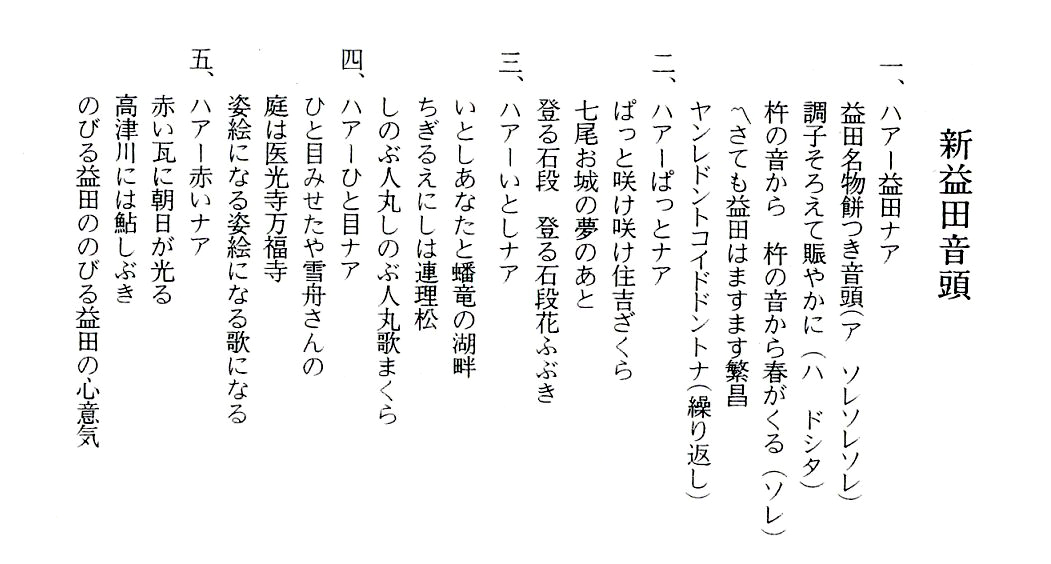 新益田音頭
一、ハアー益田ナア
益田名物餅つき音頭(ア　ソレソレソレ)
調子そろえて賑やかに(ハ　ドシタ)
杵の音から　杵の音から春がくる(ソレ)
〽さても益田はますます繁昌
ヤンレドントコイドドントナ(繰り返し)
二、ハアーぱっとナア
ぱっと咲け咲け住吉ざくら
七尾お城の夢のあと
登る石段　登る石段花ふぶき
三、ハアーいとしナア
いとしあなたと蟠竜の湖畔
ちぎるえにしは連理松
しのぶ人丸しのぶ人丸歌まくら
四、ハアーひと目ナア
ひと目みせたや雪舟さんの
庭は医光寺万福寺
姿絵になる姿絵になる歌になる
五、ハアー赤いナア
赤い瓦に朝日が光る
高津川には鮎しぶき
のびる益田ののびる益田の心意気